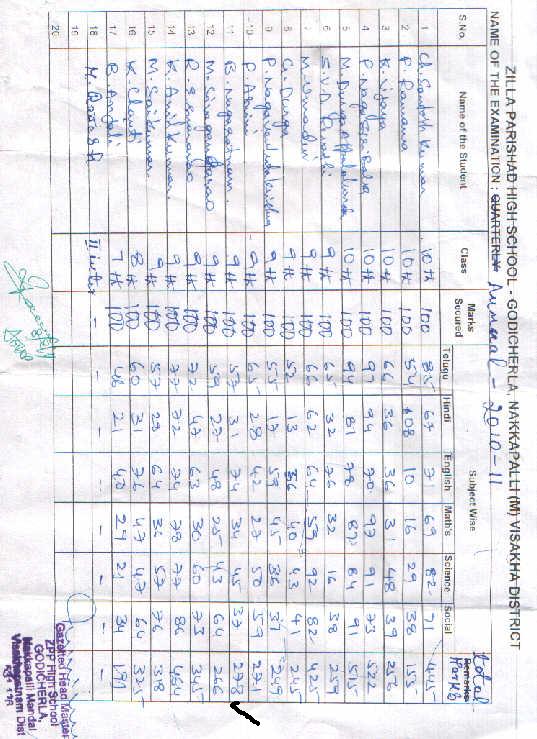 ZILLA PARISHAD HIGH SCHOOL - GODICHERLA, NAKKAPALLI (M) VISAKHA DISTRICT
NAME OF THE EXAMINATION : QUARTERLY Annual - 2010-11
S.No. Name of the Student Class Marks Secured Subject Wise Total Marks Remarks
Telugu Hindi English Math's Science Social
1 Ch. Santosh Kumar 10th 100 85 67 71 69 82 71 445
2 P. Ramana 10th 100 54 08 10 16 29 38 155
3 K. Vijaya 10th 100 66 36 36 31 48 39 256
4 P. Naga Sree Raja 10th 100 97 94 70 97 91 73 522
5 M. Durga Appalakonda 10th 100 94 81 78 87 84 91 515
6 S.V.D. Revathi 9th 100 65 32 76 32 16 38 259
7 M. Umadevi 9th 100 66 62 64 59 92 82 425
8 Ch. Durga 9th 100 52 13 56 40 43 41 245
9 P. 9th 100 55 17 59 45 36 37 249
10 P. 9th 100 65 28 42 27 50 59 271
11 B. Nagaratnam 9th 100 57 31 74 34 45 37 278
12 M. Sivaganga rao 9th 100 59 27 48 25 43 64 266
13 R. Eswararao 9th 100 72 47 63 30 60 73 345
14 K. Anil Kumar. 9th 100 77 72 74 78 77 86 464
15 M. Sai Kumar. 9th 100 57 29 64 36 57 76
16 K. Chanti 8th 100 60 31 76 47 47 64 325
17 B. Anjali 7th 100 48 21 40 29 21 34
18 M. II inter - - - - - - -
19
20
Gazetted Head Master
ZPP High School
GODICHERLA,
Nakkapalli Mandal
Visakhapatnam Dist